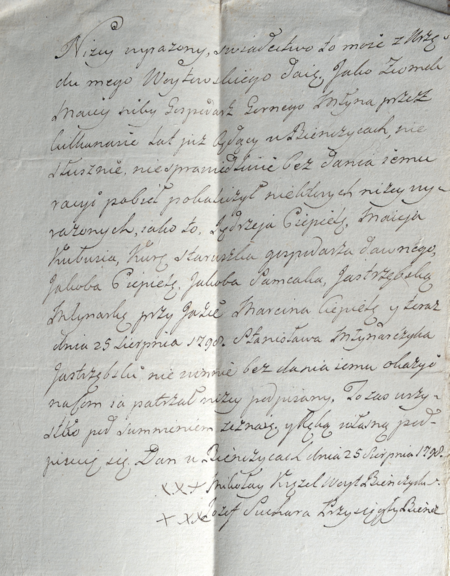 Niżey wyrażony, swiadectwo to moie z Urzę-
du mego Woytowskiego daię, Jako
Maciey Gospodarz Gornego Młyna przez
kilkanaście Lat już będący w Bieńczycach, nie
słusznie, niesprawiedliwie bez dania iemu
racyi pobił pokaliczył niektorych niżey wy-
rażonych, iako to, Jędrzeja Ciepielę, Macieja
Kubusia, Kurę staruszka gospodarza dawnego,
Jakoba Ciepielę, Jakoba Jastrzębską
Młynarkę przy Jazie Marcina Ciepielę y teraz
dnia 25 Sierpnia 1798. Stanisława Młynarczyka
Jastrzębski niewinnie bez dania iemu okazyi
na com ia patrzał niżey podpisany. To zas wszy-
stko pod sumnieniem zeznaię, y Ręką własną pod-
pisuię się. Dan w Bieńczycach dnia 25 Sierpnia 1798.
xx+ Mikołay Kyzel Woyt Bieńczycki.
+xx Jozef Suchara Przysięgły Bieńcz